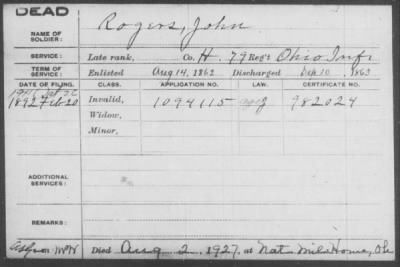 DEAD
Rogers, John
NAME OF SOLDIER:
SERVICE: Late rank, Co. H. 79 Reg't Ohio Inf.
TERM OF SERVICE: Enlisted Aug 14, 1862 Discharged Sep 10, 1863
DATE OF FILING. CLASS. APPLICATION NO. LAW. CERTIFICATE NO.
1892 Feb 20 Invalid, 1094115 982024
Widow,
Minor,
ADDITIONAL SERVICES:
REMARKS:
Died Aug 2, 1927, at Nat Mil Home, Oh